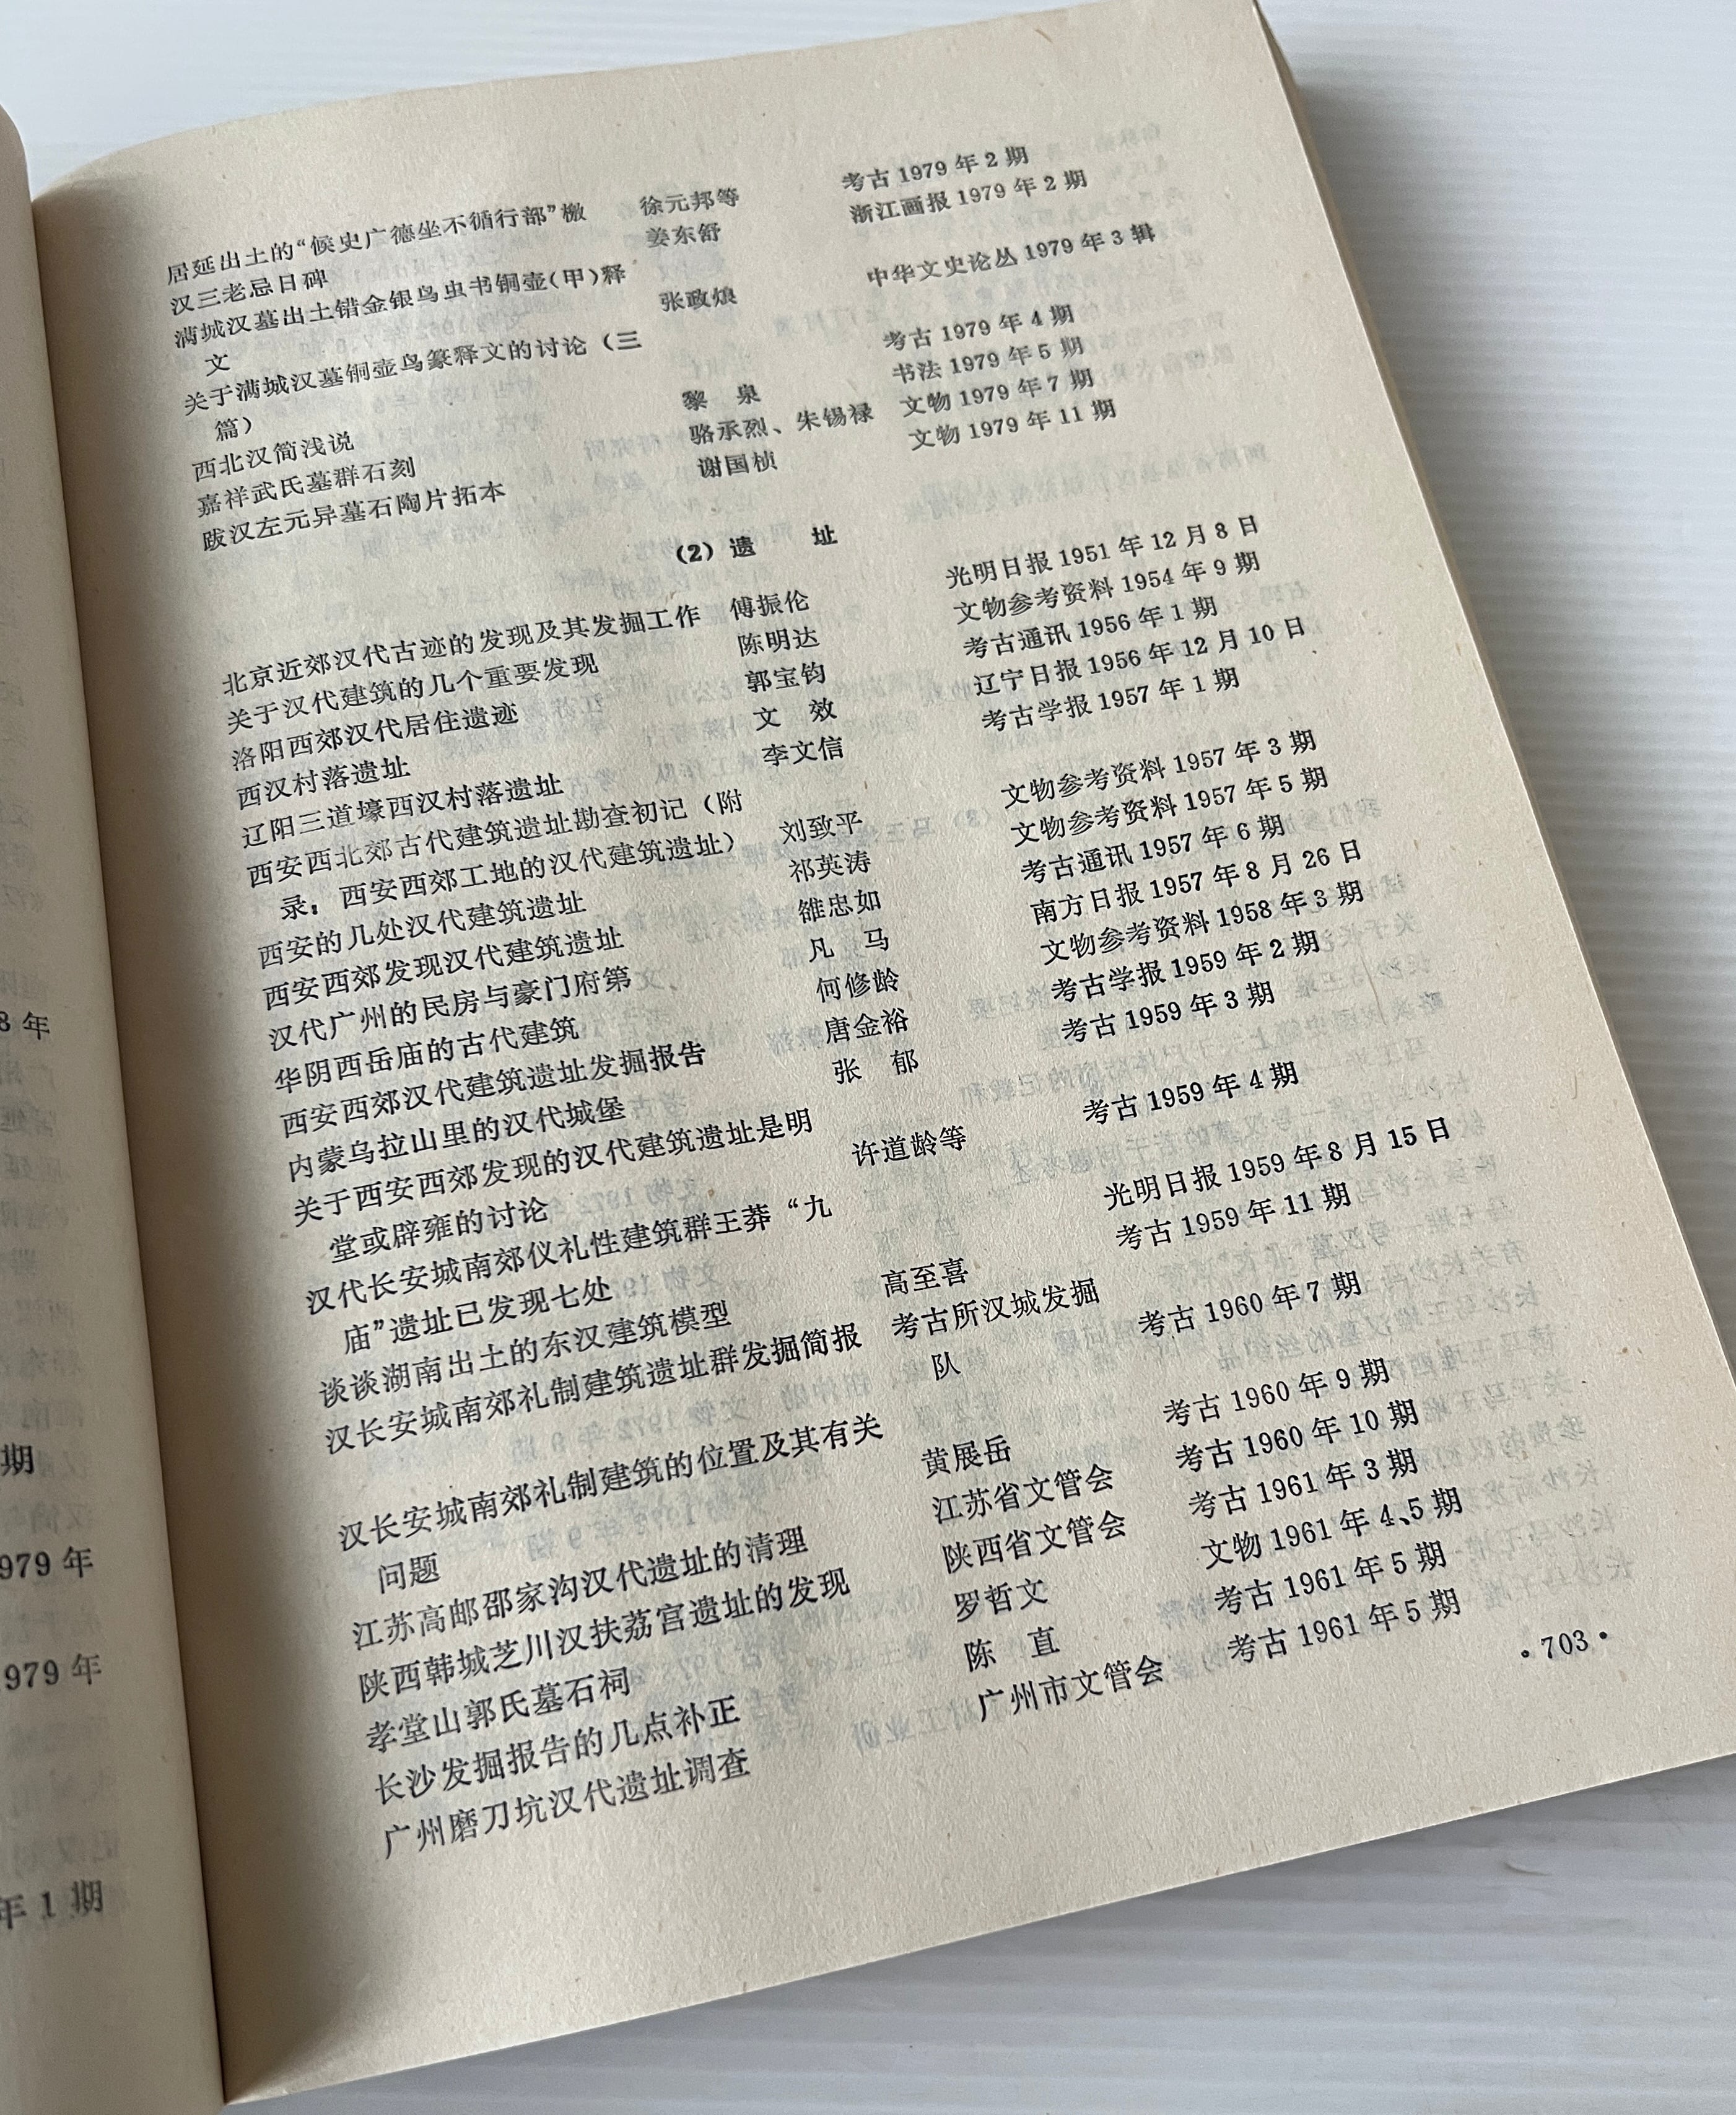 居延出土的“候史广德坐不循行部”檄 徐元邦等 考古 1979 年 2 期
汉三老忌日碑 姜东舒 浙江画报 1979 年 2 期
满城汉墓出土错金银鸟虫书铜壶(甲)释
文 张政烺 中华文史论丛 1979 年 3 辑
关于满城汉墓铜壶鸟篆释文的讨论（三
篇） 考古 1979 年 4 期
西北汉简浅说 黎 泉 书法 1979 年 5 期
嘉祥武氏墓群石刻 骆承烈、朱锡禄 文物 1979 年 7 期
跋汉左元异墓石陶片拓本 谢国桢 文物 1979 年 11 期
(2) 遗 址
北京近郊汉代古迹的发现及其发掘工作 傅振伦 光明日报 1951 年 12 月 8 日
关于汉代建筑的几个重要发现 陈明达 文物参考资料 1954 年 9 期
洛阳西郊汉代居住遗迹 郭宝钧 考古通讯 1956 年 1 期
西汉村落遗址 文 效 辽宁日报 1956 年 12 月 10 日
辽阳三道壕西汉村落遗址 李文信 考古学报 1957 年 1 期
西安西北郊古代建筑遗址勘查初记（附
录：西安西郊工地的汉代建筑遗址） 刘致平 文物参考资料 1957 年 3 期
西安的几处汉代建筑遗址 祁英涛 文物参考资料 1957 年 5 期
西安西郊发现汉代建筑遗址 雒忠如 考古通讯 1957 年 6 期
汉代广州的民房与豪门府第 凡 马 南方日报 1957 年 8 月 26 日
华阴西岳庙的古代建筑 何修龄 文物参考资料 1958 年 3 期
西安西郊汉代建筑遗址发掘报告 唐金裕 考古学报 1959 年 2 期
内蒙乌拉山里的汉代城堡 张 郁 考古 1959 年 3 期
关于西安西郊发现的汉代建筑遗址是明
堂或辟雍的讨论 许道龄等 考古 1959 年 4 期
汉代长安城南郊仪礼性建筑群王莽“九
庙”遗址已发现七处 光明日报 1959 年 8 月 15 日
谈谈湖南出土的东汉建筑模型 高至喜 考古 1959 年 11 期
汉长安城南郊礼制建筑遗址群发掘简报 考古所汉城发掘
队 考古 1960 年 7 期
汉长安城南郊礼制建筑的位置及其有关
问题 黄展岳 考古 1960 年 9 期
江苏高邮邵家沟汉代遗址的清理 江苏省文管会 考古 1960 年 10 期
陕西韩城芝川汉扶荔宫遗址的发现 陕西省文管会 考古 1961 年 3 期
孝堂山郭氏墓石祠 罗哲文 文物 1961 年 4、5 期
长沙发掘报告的几点补正 陈 直 考古 1961 年 5 期
广州磨刀坑汉代遗址调查 广州市文管会 考古 1961 年 5 期
• 703 •
8 年
期
979 年
979 年
年 1 期